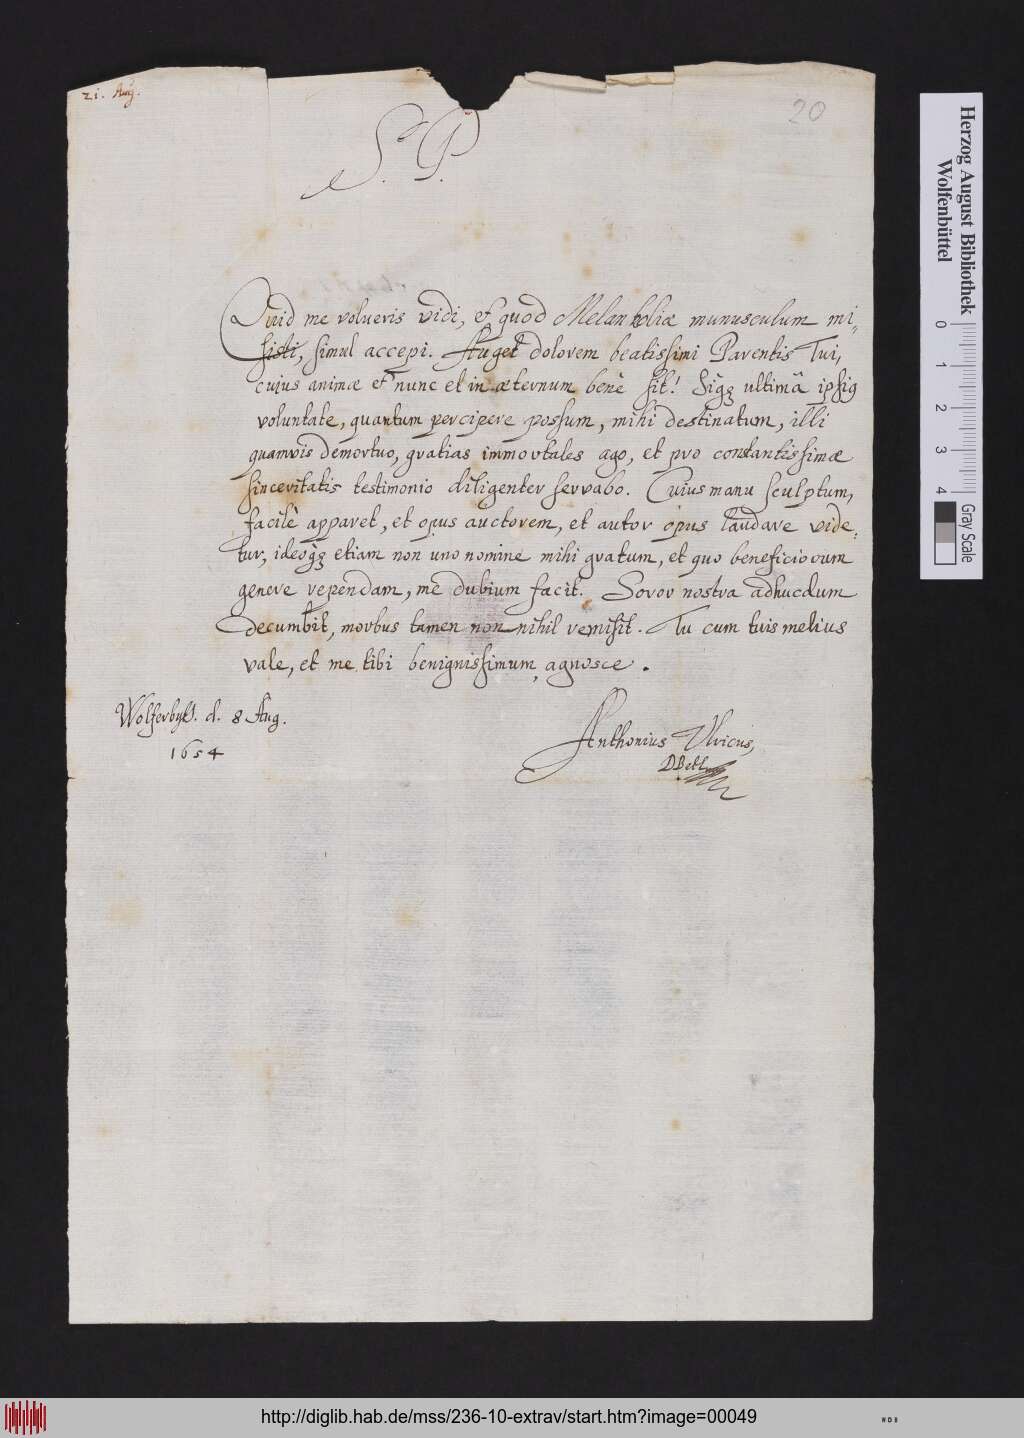 21. Aug.
20
S. P.
Quid me volueris vidi, et quod Melankoliæ munusculum mi,,
sisti, simul accepi. Auget dolorem beatissimi Parentis Tui,
cuius animæ et nunc et in æternum benè sit! Siqȝ ultimâ ipsiq
voluntate, quantum percipere possum, mihi destinatum, illi
quamvis demortuo, gratias immortales ago, et pro constantissimæ
sinceritatis testimonio diligenter servabo. Cuius manu sculptum,
facilè apparet, et opus auctorem, et autor opus laudare vide,,
tur, ideoqȝ etiam non uno nomine mihi gratum, et quo beneficiorum
genere rependam, me dubium facit. Soror nostra adhucdum
decumbit, morbus tamen non nihil remisit. Tu cum tuis melius
vale, et me tibi benignissimum agnosce.
Wolferbyt. d. 8 Aug.
1654
Anthonius Ulricus,
Herzog August Bibliothek
Wolfenbüttel
0 1 2 3 4
Gray Scale
http://diglib.hab.de/mss/236-10-extrav/start.htm?image=00049